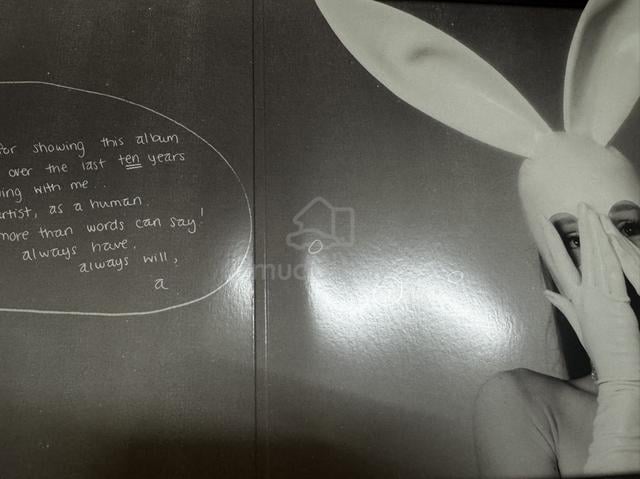 for showing this album
over the last ten years
ing with me..
artist, as a human.
more than words can say!
always have.
always will,
a